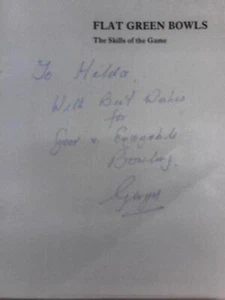 FLAT GREEN BOWLS
The Skills of the Game
To Hilda,
With Best Wishes
for
Good & Enjoyable
Bowling.